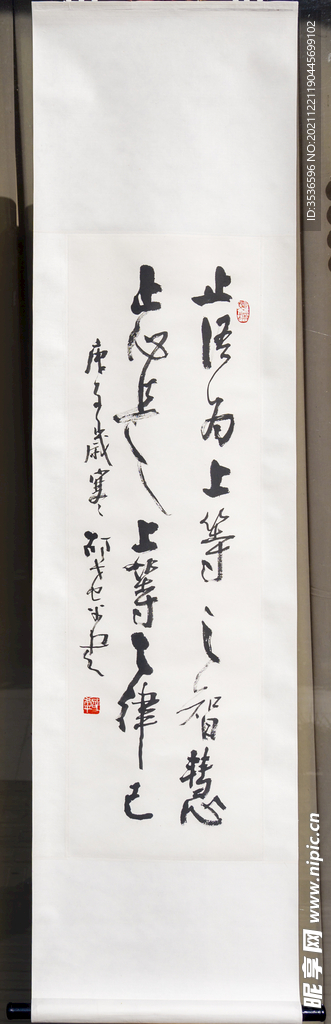 止语为上等之智慧
止心是上等之律己
庚子歲寒
ID:3536596 NO:20211221190445699102
昵享网 www.nipic.cn